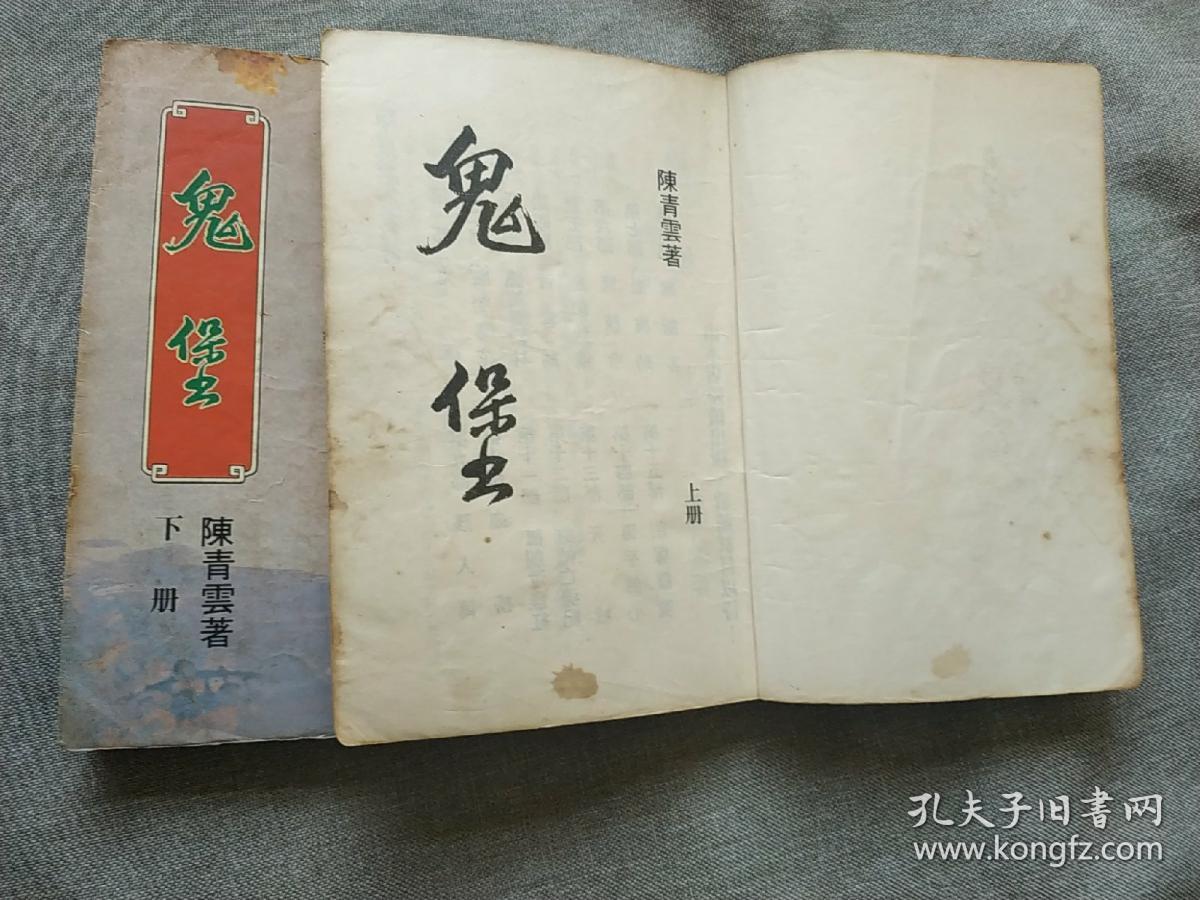 鬼堡
陳青雲著
下册
陳青雲著
鬼堡
上册
孔夫子旧书网
www.kongfz.com